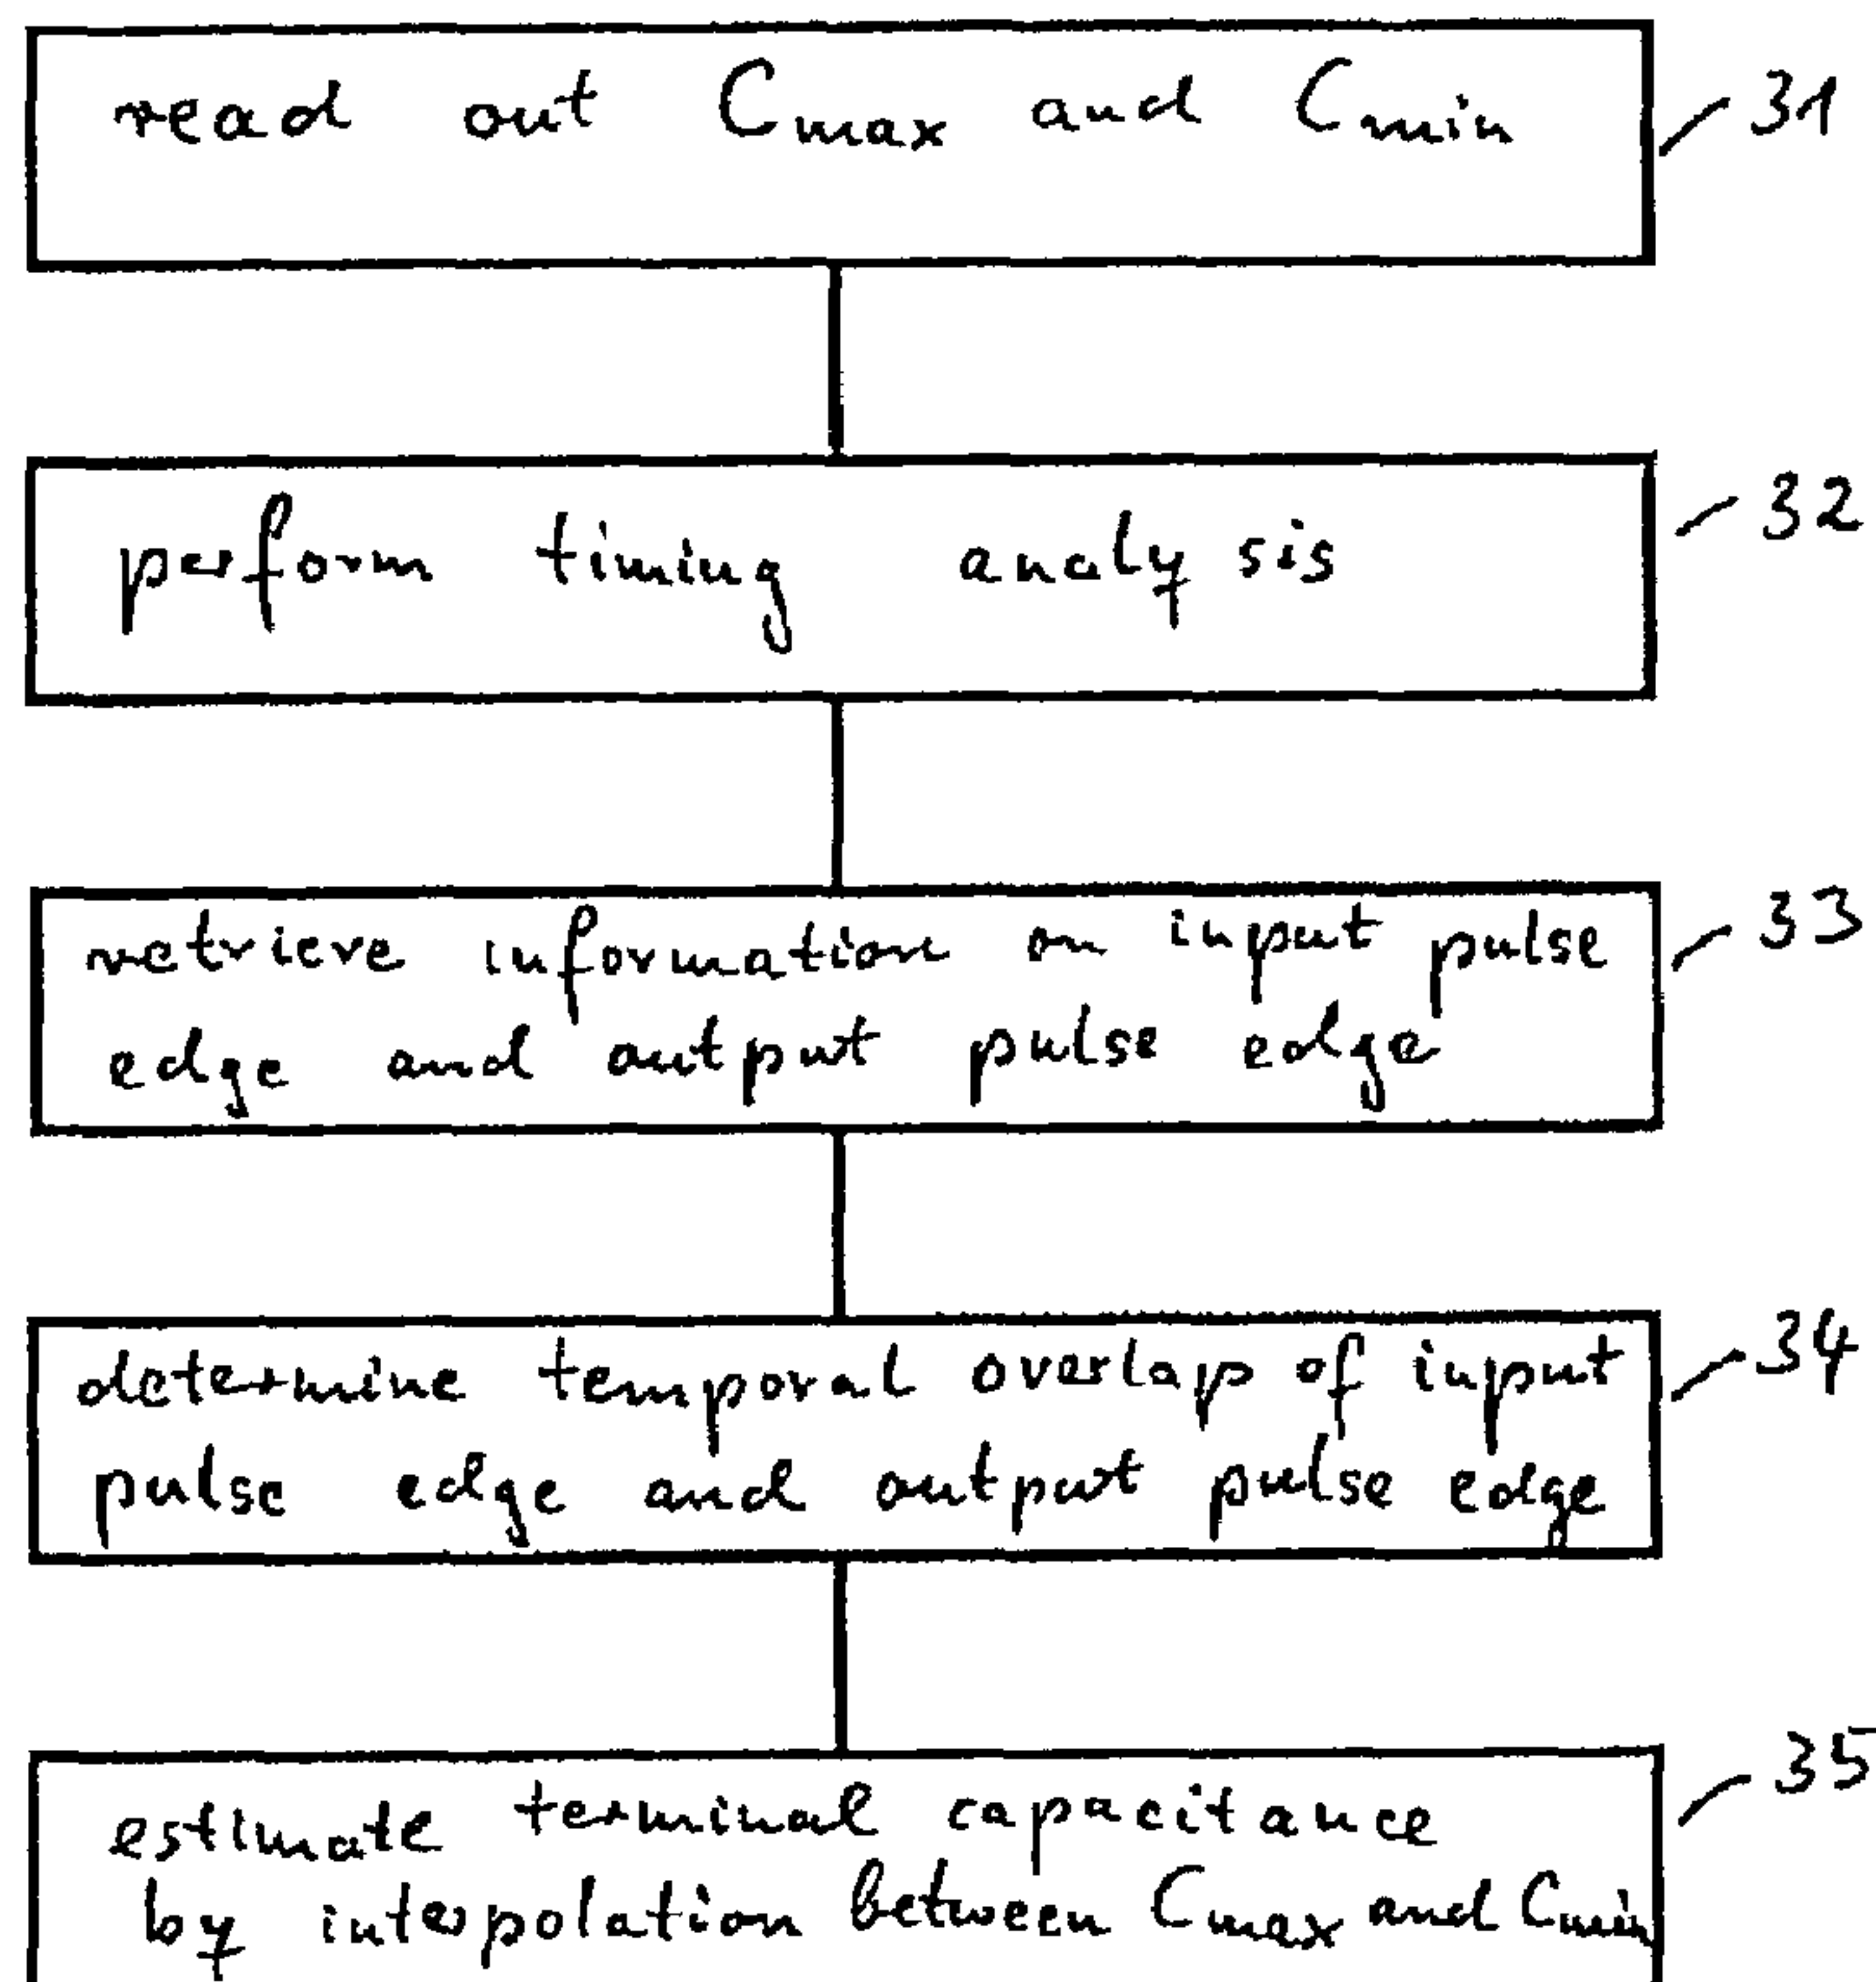 read out Cmax and Cmin
31
perform timing analysis
32
retrieve information on input pulse
edge and output pulse edge
33
determine temporal overlap of input
pulse edge and output pulse edge
34
estimate terminal capacitance
by interpolation between Cmax and Cmin
35